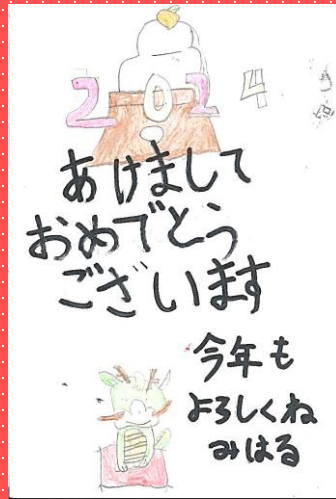 2024
あけまして
おめでとう
ございます
今年も
よろしくね
みはる